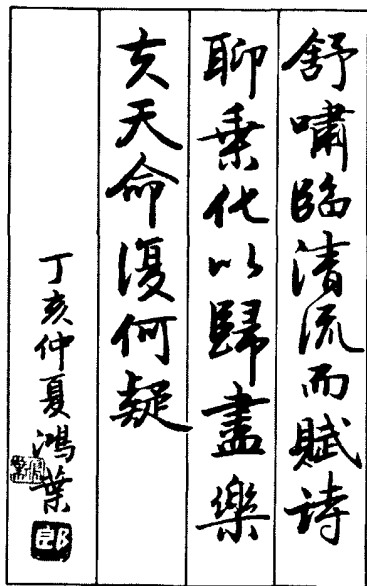 舒嘯臨清流而賦詩
聊乗化以歸盡樂
夫天命復何疑
丁亥仲夏鴻葉
郎